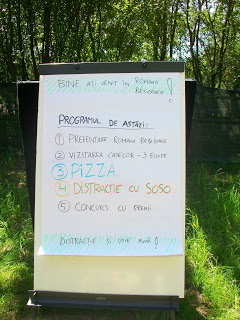 BINE AȚI VENIT ÎN ROMANA
RESIDENCE!
PROGRAMUL DE ASTĂZI:
1 PREZENTARE ROMANA RESIDENCE
2 VIZITAREA CASELOR - 3 ECHIPE
3 PIZZA
4 DISTRACȚIE CU SOSO
5 CONCURS CU PREMII
DISTRACȚIE ȘI VOIE BUNĂ!